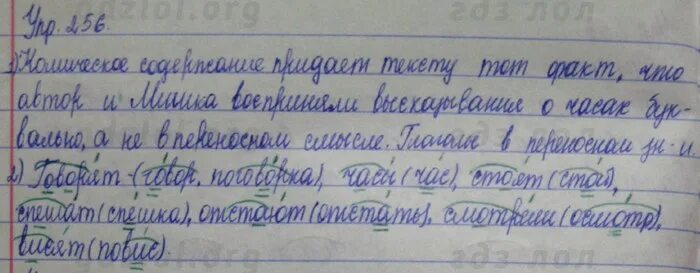 gdzlol.org
гдз лол
Упр. 256.
1) Комическое содержание придаёт тексту тот факт, что
автор и Мишка восприняли высказывание о часах бук-
вально, а не в переносном смысле. Глаголы в переносном зн-и.
2) Говорят - (говор, поговорка), часы (час), стоят (стоя),
спешат (спешка), отстают (отстать), смотрели (осмотр),
висят (повис).
гдз лол